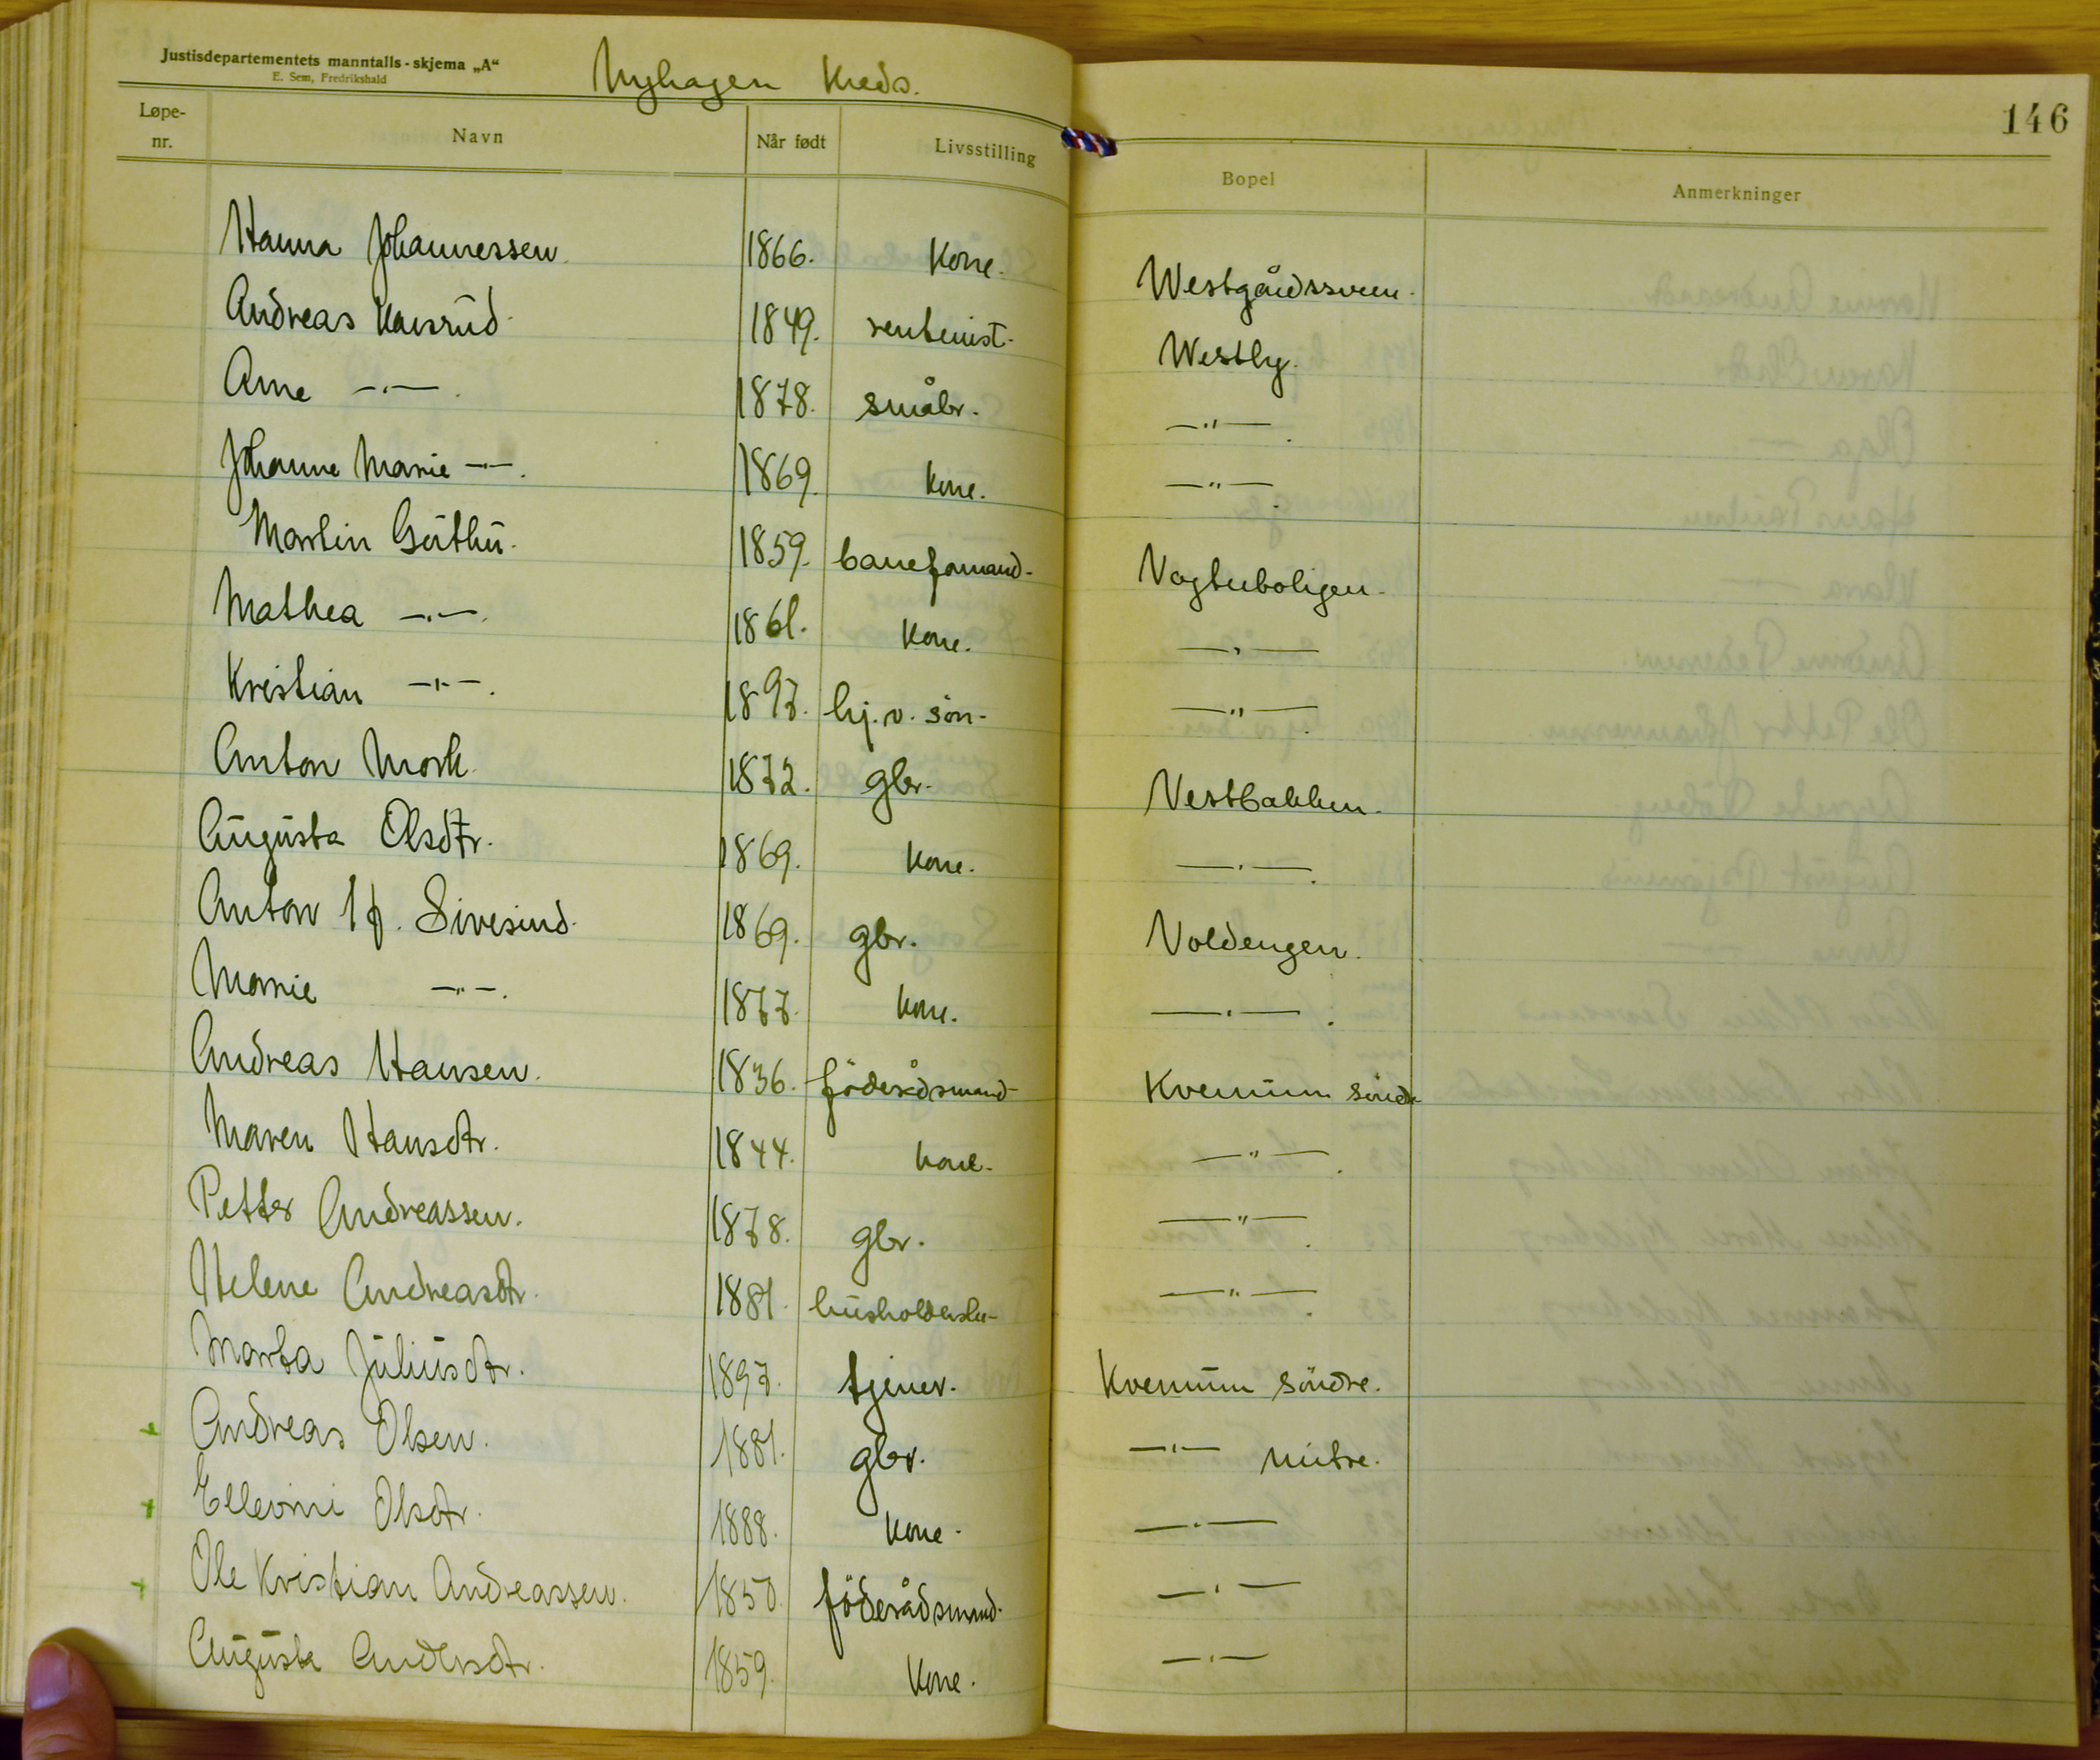 Justisdepartementets manntalls-skjema „A“
E. Sem, Fredrikshald
Nyhagen Kreds.
146
Løpe-nr. Navn Når født Livsstilling Bopel Anmerkninger
Hanna Johannessen. 1866. Kone. Westgårdssveen.
Andreas Kausrud. 1849. rentenist. Westly.
Arne —"— 1878. småbr. —"—.
Johanne Marie —"—. 1869. kone. —"—.
Martin Guthu. 1859. baneformand. Vogterboligen.
Mathea —"—. 1861. kone. —"—
Kristian —"—. 1897. hj.v. sön. —"—.
Anton Mork. 1872. gbr. Vestbakken.
Augusta Olsdtr. 1869. kone. —"—.
Anton Sivesind. 1869. gbr. Voldengen.
Marie —"—. 1877. kone. —"—.
Andreas Hansen. 1836. föderådsmand. Kvemum sönd.
Maren Hansdtr. 1844. kone. —"—.
Petter Andreassen. 1878. gbr. —"—.
Helene Andreasdtr. 1881. husholderske. —"—.
Marta Juliusdtr. 1897. tjener. Kvemum söndre.
+ Andreas Olsen. 1881. gbr. —"— mitre.
+ Ellevine Olsdtr. 1888. kone. —"—
+ Ole Kristian Andreassen. 1850. föderådsmand. —"—
Augusta Andersdtr. 1859. Kone. —"—